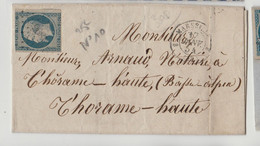 N° 10
Monsieur
Monsieur, Arnaud, Notaire, à
Thorame-haute, (Basses-alpes)
Thorame-haute